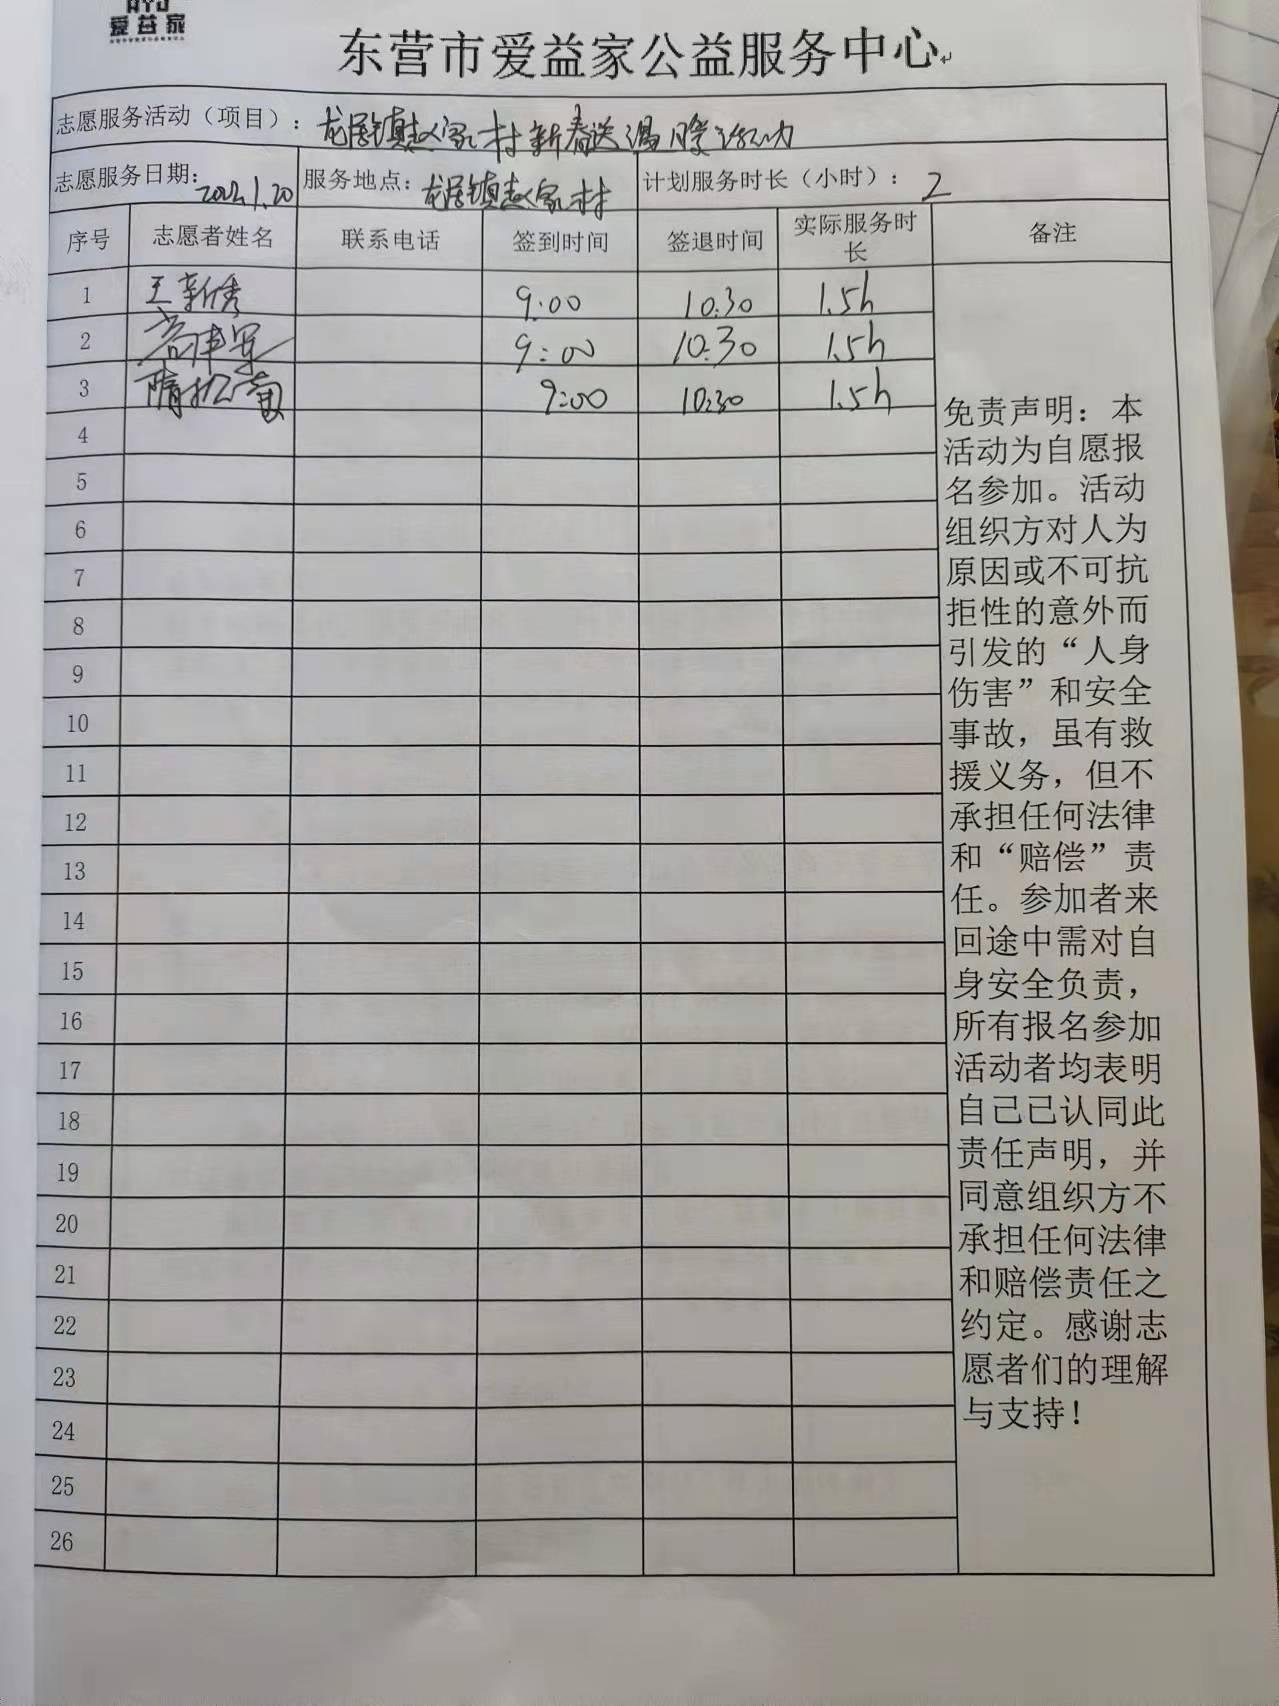 AYJ
爱益家
东营市爱益家公益服务中心
志愿服务活动（项目）：龙居镇赵家村新春送温暖活动
志愿服务日期：2022.1.20 服务地点：龙居镇赵家村 计划服务时长（小时）：2
序号 志愿者姓名 联系电话 签到时间 签退时间 实际服务时长 备注
1 王新秀 9:00 10:30 1.5h
2 9:00 10:30 1.5h
3 隋 9:00 10:30 1.5h
4
5
6
7
8
9
10
11
12
13
14
15
16
17
18
19
20
21
22
23
24
25
26
免责声明：本
活动为自愿报
名参加。活动
组织方对人为
原因或不可抗
拒性的意外而
引发的“人身
伤害”和安全
事故，虽有救
援义务，但不
承担任何法律
和“赔偿”责
任。参加者来
回途中需对自
身安全负责，
所有报名参加
活动者均表明
自己已认同此
责任声明，并
同意组织方不
承担任何法律
和赔偿责任之
约定。感谢志
愿者们的理解
与支持！